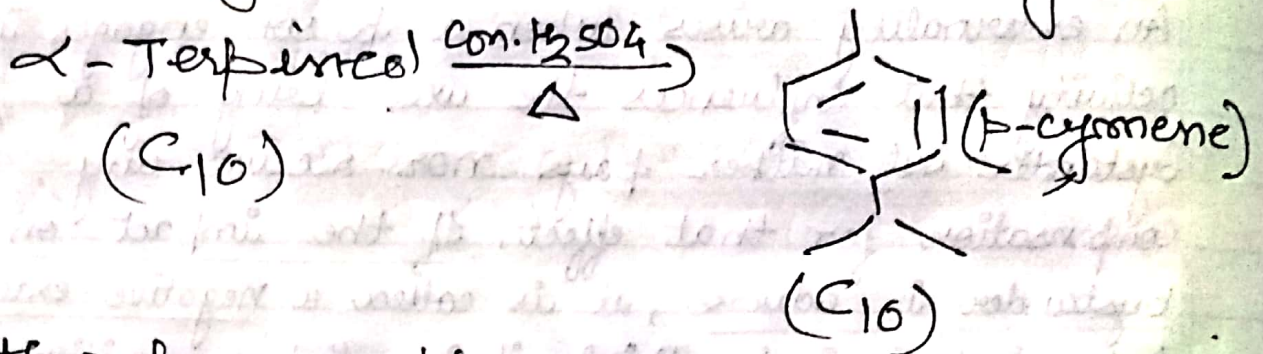 α-Terpineol con. H2SO4 →
Δ
(p-cymene)
(C10)
(C10)